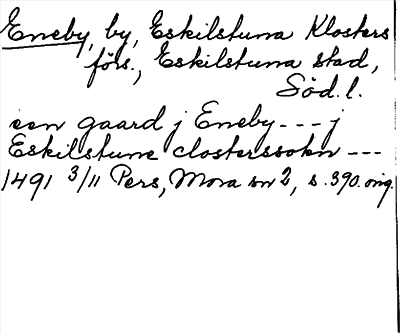 Eneby, by, Eskilstuna Klosters
förs., Eskilstuna stad,
Söd. l.
een gaard j Eneby --- j
Eskilstune closterssokn ---
1491 3/11 Pers, Mora sn 2, s. 390. orig.